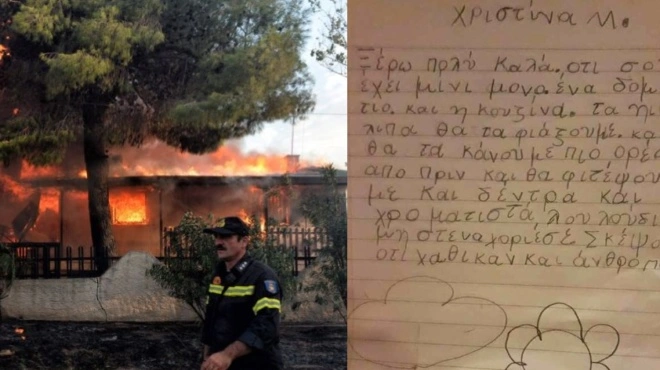 Χριστίνα Μ.
Ξέρω πολύ καλά. ότι σο
έχει μίνι μονο. ένα δομ
τιο. και η κουζίνα. τα ηι
λιπα θα τα φιάξουμε. κα
θα τα κάνουμε πιο ορε
απο πριν και θα φιτέψου
με και δέντρα και
χρο ματιστά λουλούδι
μη στεναχοριέσε σκέψ
οτι χαθικαν και άνθροπ